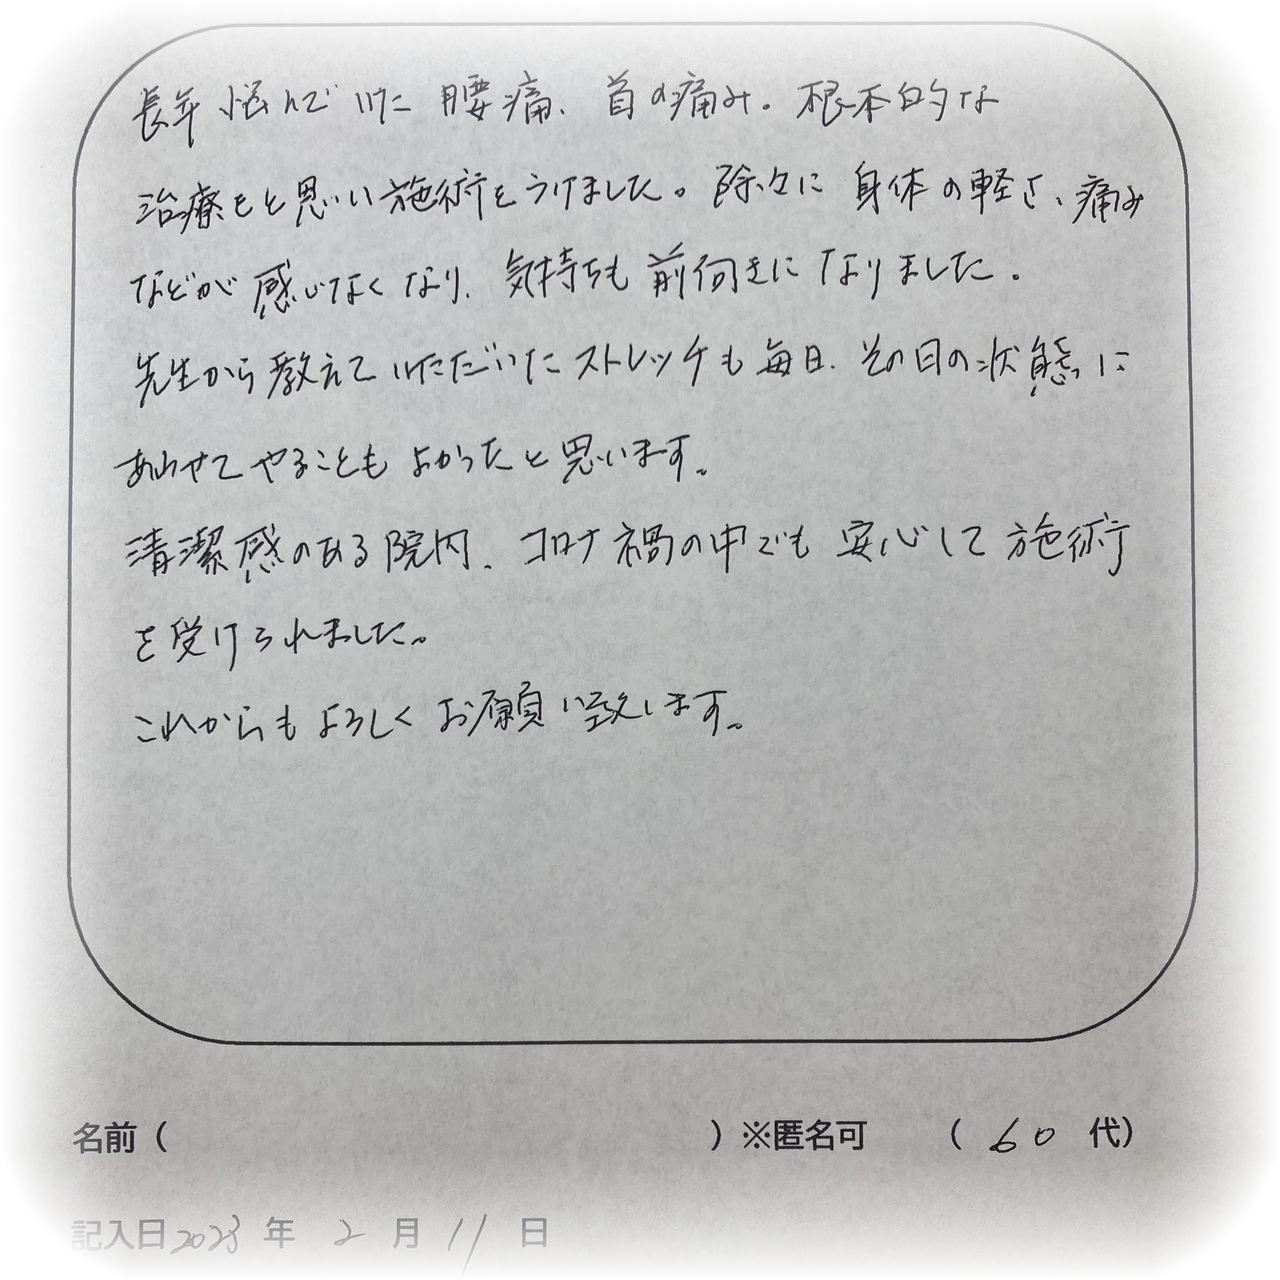 長年悩んでいた腰痛、首の痛み。根本的な
治療をと思い施術をうけました。除々に身体の軽さ、痛み
などが感じなくなり、気持ちも前向きになりました。
先生から教えていただいたストレッチも毎日、その日の状態に
あわせてやることもよかったと思います。
清潔感のある院内、コロナ禍の中でも安心して施術
を受けられました。
これからもよろしくお願い致します。
名前（ ）※匿名可 （60代）
記入日2023年2月11日